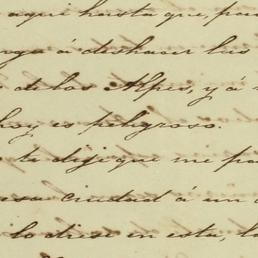 aqui hasta que, pa
á deshacer las
de los Alpes, y á
hoy es peligroso.
te dije que me pa
esa ciudad á un
lo diese en esta, la